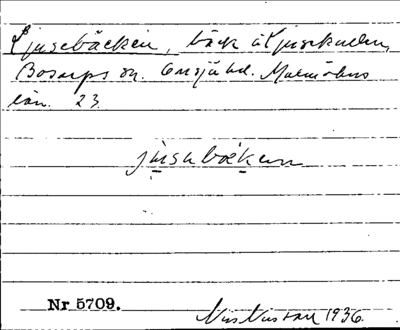 Ljusebäcken, bäck i Ljusekullen,
Bosarps sn. Onsjö hd. Malmöhus
län. 23.
jusubækenn
Nr 5709.
1936.